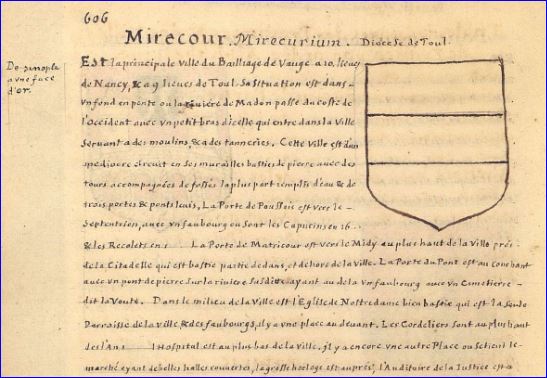 606
Mirecour. Mirecurium. Diocese de Toul.
De sinople
a vne face
d'or.
Est la principale Ville du Bailliage de Vauge a 10. lieues
de Nancy, & a 9 lieues de Toul. Sa Situation est dans
vn fond en pente ou la riviere de Madon passe du coste de
l'Occident avec vn petit bras d'icelle qui entre dans la Ville
servant a des moulins & a des tanneries. Cette Ville est d'un
mediocre circuit en Ses murailles basties de pierre avec des
tours accompagnées de fossés la plus part remplis d'eau & de
trois portes & ponts levis, La Porte de Poussois est vers le
Septentrion, avec vn faubourg ou Sont les Capucins en 16
& les Recolets en 1 La Porte de Matricour est vers le Midy au plus haut de la Ville prés
de la Citadelle qui est bastie partie dedans, et dehors de la Ville. La Porte du Pont est au couchant
avec vn pont de pierre Sur la riviere Susdite ayant au dela vn faubourg avec vn Cemetiere
dit la Voute. Dans le milieu de la Ville est l'Eglise de Nostre dame bien bastie qui est la Seule
Parroisse de la ville & des faubourgs, il y a vne place au devant. Les Cordeliers sont au plus haut
de l'An l Hospital est au plus bas de la ville. il y a encore vne autre Place ou Se tient le
marché ayant de belles halles couvertes, la grosse horloge est auprés, l'Auditoire de la Justice est a